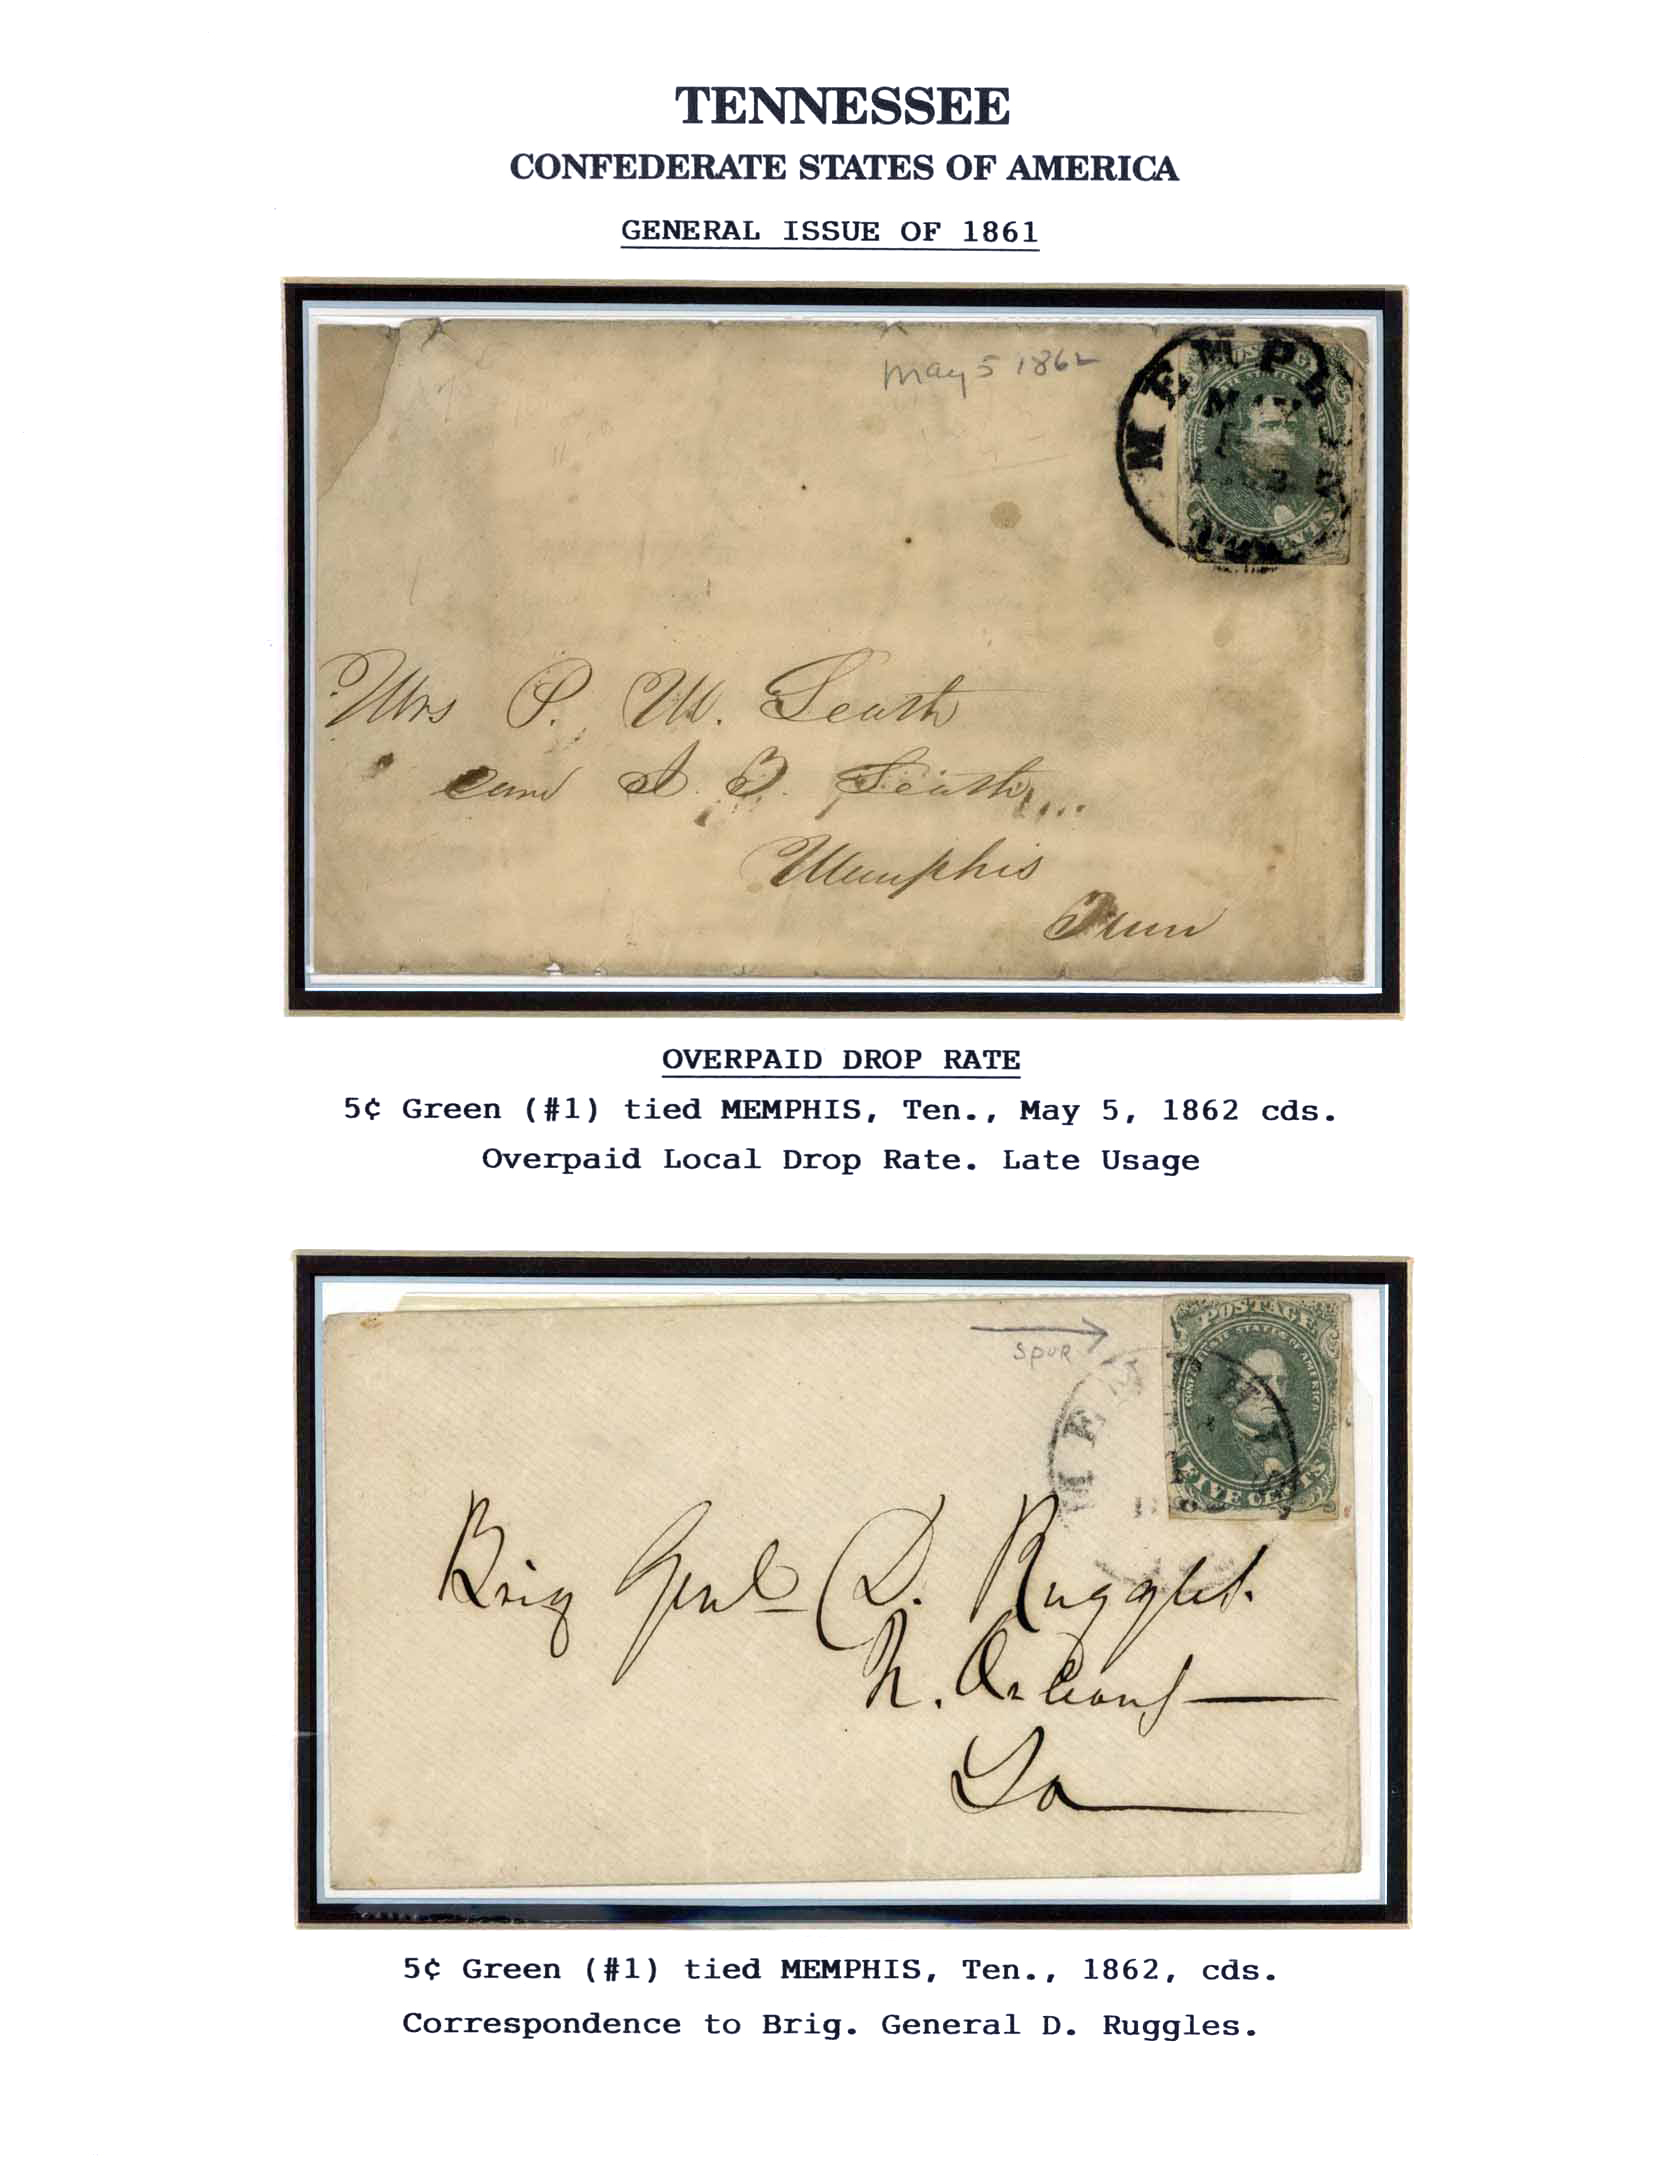 TENNESSEE
CONFEDERATE STATES OF AMERICA
GENERAL ISSUE OF 1861
May 5 1862
MEMPH
MAY
POSTAGE
Mrs P. M. Seath
care S. B. Seath
Memphis
Tenn
OVERPAID DROP RATE
5¢ Green (#1) tied MEMPHIS, Ten., May 5, 1862 cds.
Overpaid Local Drop Rate. Late Usage
SPUR
POSTAGE
CONFEDERATE STATES OF AMERICA
FIVE CENTS
MEMPHIS
Brig Genl D. Ruggles.
N. Orleans
La
5¢ Green (#1) tied MEMPHIS, Ten., 1862, cds.
Correspondence to Brig. General D. Ruggles.